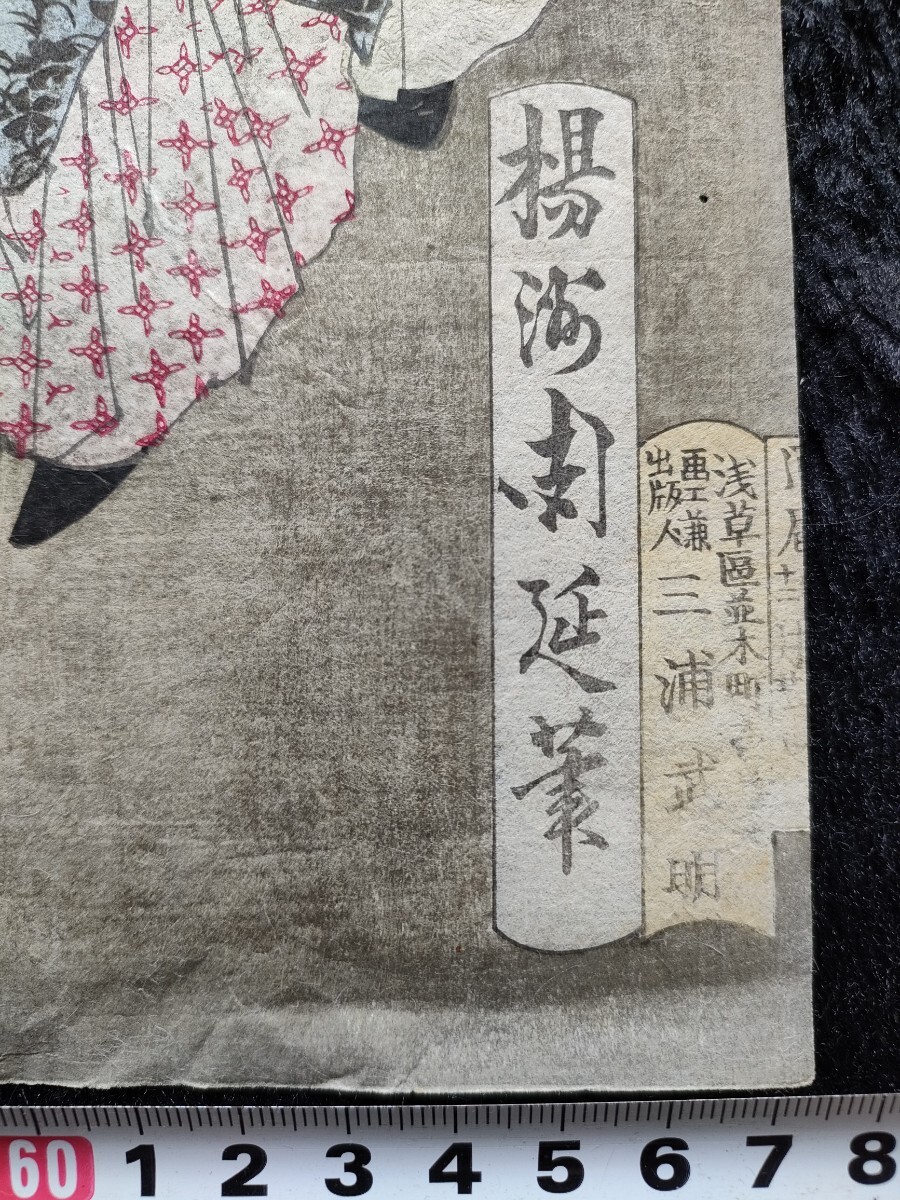 楊洲周延筆
浅草區並木町
画工兼
出版人
三浦武明
60 1 2 3 4 5 6 7 8